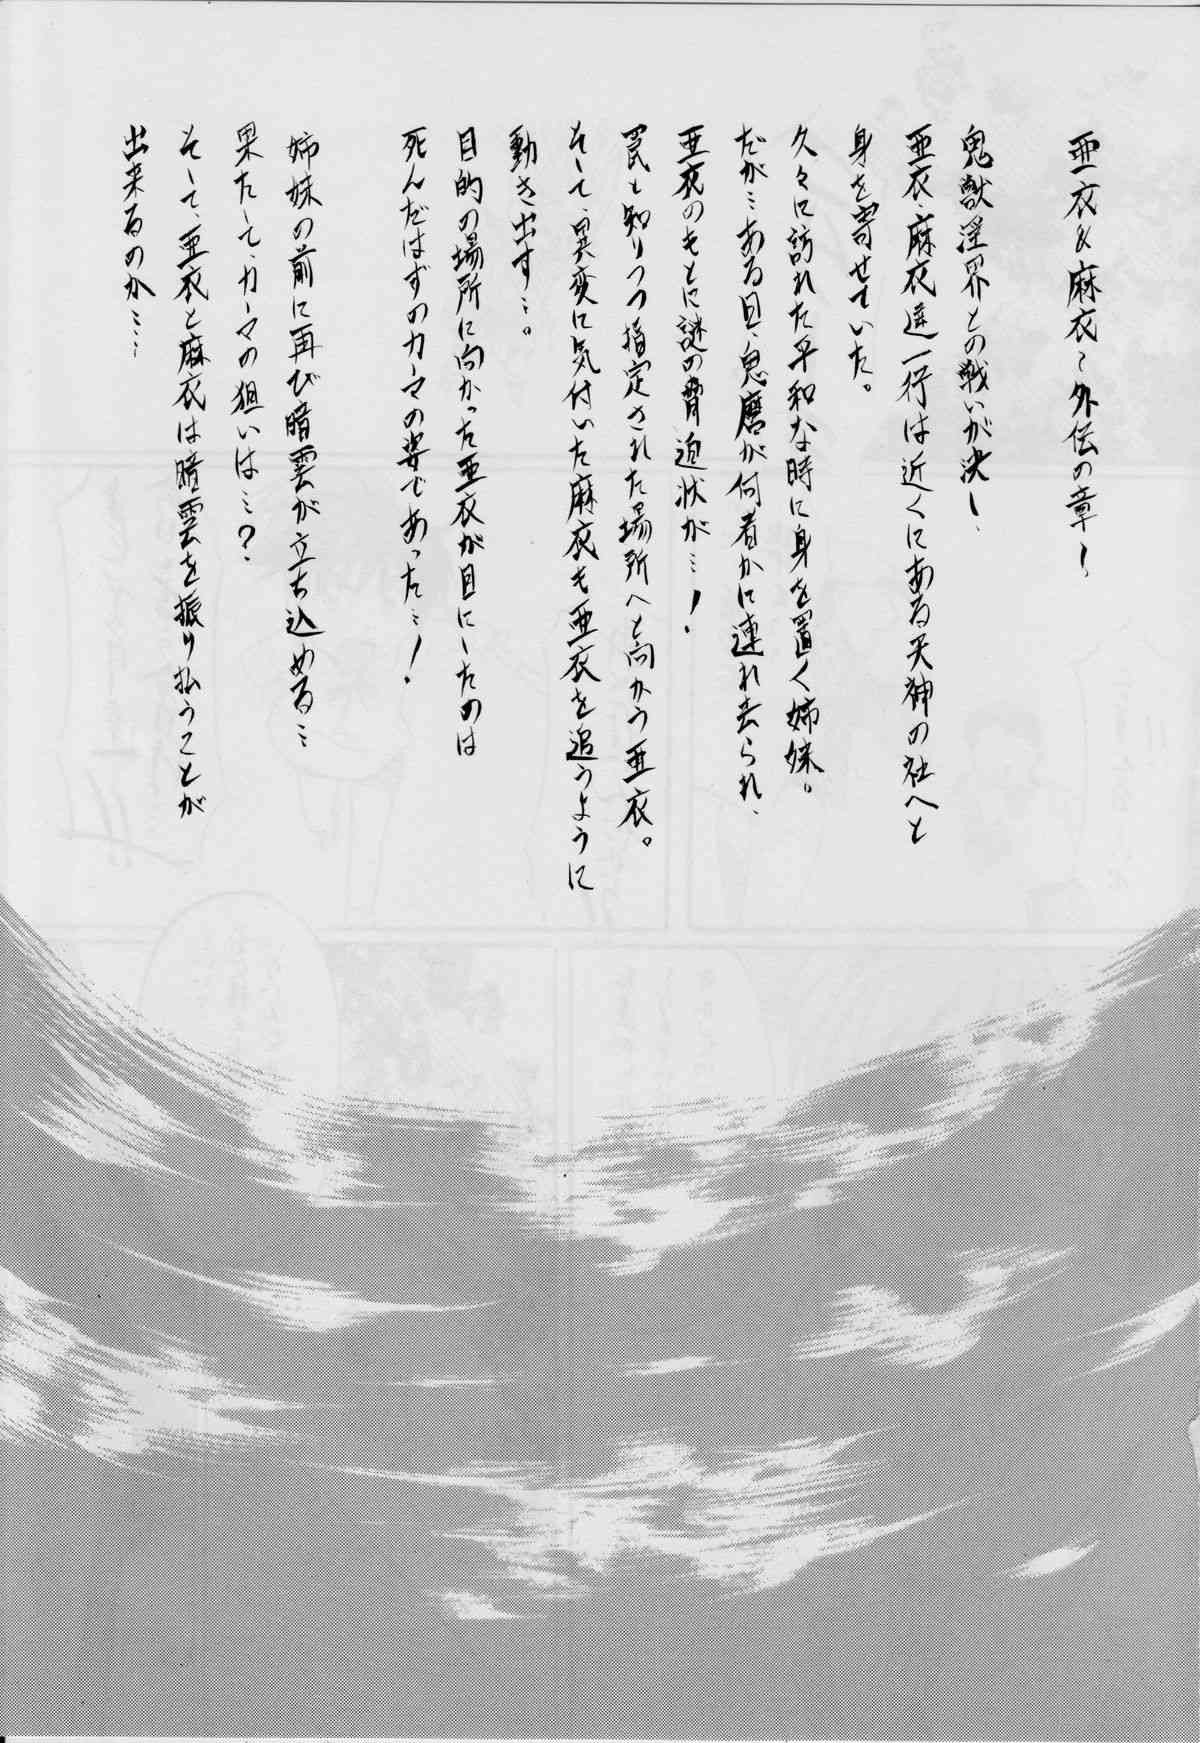 亜衣&麻衣~外伝の章!
鬼獣淫界との戦いが決し、
亜衣・麻衣達一行は近くにある天神の社へと
身を寄せていた。
久々に訪れた平和な時に身を置く姉妹。
だが…ある日、鬼麿が何者かに連れ去られ、
亜衣のもとに謎の脅迫状が…!
罠と知りつつ指定された場所へと向かう亜衣。
そして、異変に気付いた麻衣も亜衣を追うように
動き出す…。
目的の場所に向かった亜衣が目にしたのは
死んだはずのカーマの姿であった…!
姉妹の前に再び暗雲が立ち込める…
果たして、カーマの狙いは…?
そして、亜衣と麻衣は暗雲を振り払うことが
出来るのか……